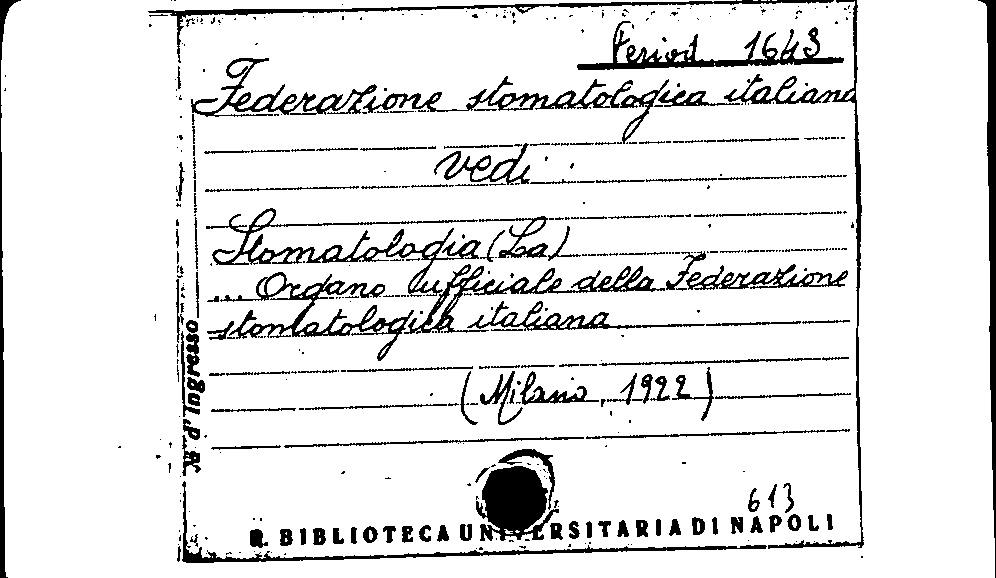 Period. 1643
Federazione stomatologica italiana
vedi:
Stomatologia (La)
... Organo ufficiale della Federazione
stomatologica italiana
(Milano, 1922)
613
R. BIBLIOTECA UNIVERSITARIA DI NAPOLI
N. d'Ingresso